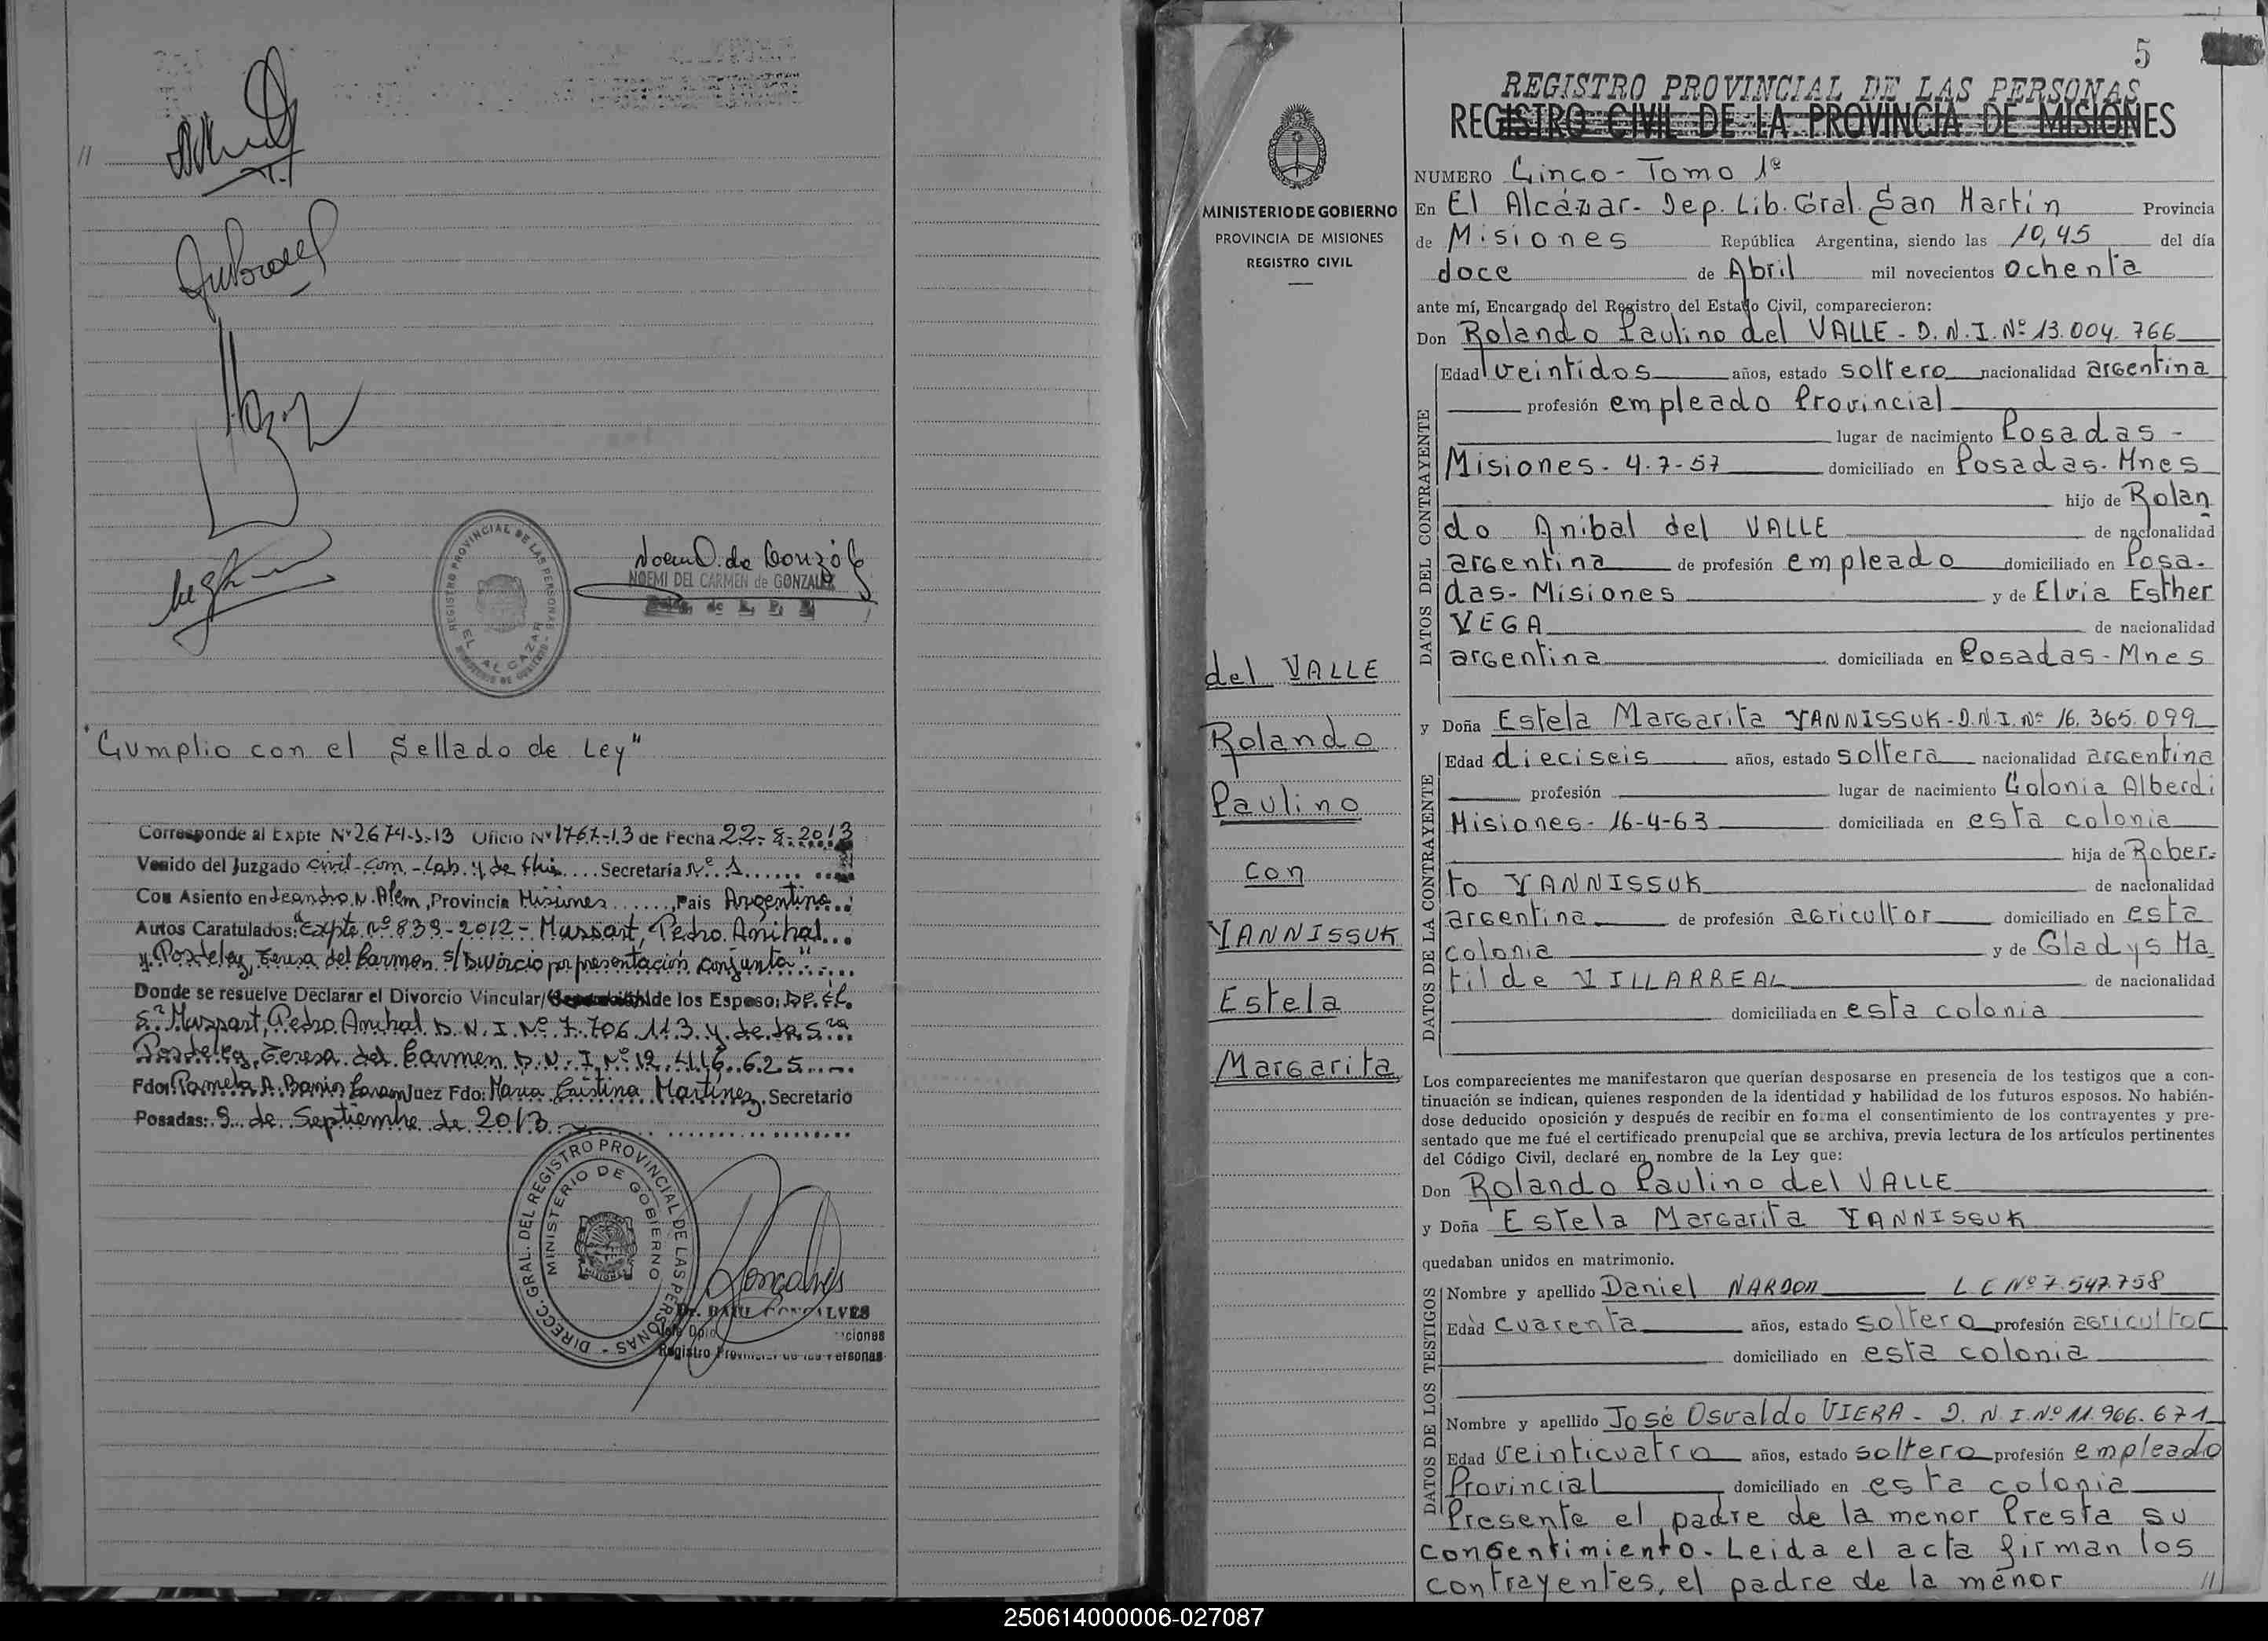 //
REGISTRO PROVINCIAL DE LAS PERSONAS
EL ALCAZAR
MINISTERIO DE GOBIERNO
NOEMI DEL CARMEN de GONZALEZ
"Cumplio con el Sellado de Ley"
Corresponde al Expte Nº 2674-S-13 Oficio Nº 1767-13 de Fecha 22-8-2013
Venido del Juzgado civil-Com-Lab. y de flia.... Secretaría Nº. 1......
Con Asiento en Leandro. N. Alem, Provincia Misiones ......, Pais Argentina..
Autos Caratulados: "Expte. nº 839-2012- Mussart, Pedro Anibal...
y Posdeley, Teresa del Carmen s/Divorcio por presentación conjunta"......
Donde se resuelve Declarar el Divorcio Vincular/ de los Esposo: De él.
Sr Musspart, Pedro Anibal D. N. I. Nº 7.706.113 y de la Sra
Posdeley, Teresa del Carmen D. N. I. Nº 12.416.625.....
Fdo: Pamela A. Barrios Juez Fdo: Maria Cristina Martínez. Secretario
Posadas: 9 de Septiembre de 2013
DIRECC. GRAL. DEL REGISTRO PROVINCIAL DE LAS PERSONAS -
MINISTERIO DE GOBIERNO
MISIONES
Goncalves
Dr. RAUL GONCALVES
Jefe Dpto ciones
Registro Provincial de las Personas
5
REGISTRO PROVINCIAL DE LAS PERSONAS
REGISTRO CIVIL DE LA PROVINCIA DE MISIONES
MINISTERIO DE GOBIERNO
PROVINCIA DE MISIONES
REGISTRO CIVIL
del VALLE
Rolando
Paulino
con
YANNISSUK
Estela
Margarita
NUMERO Cinco - Tomo 1º
En El Alcázar - Dep. Lib. Gral. San Martín Provincia
de Misiones República Argentina, siendo las 10,45 del día
doce de Abril mil novecientos ochenta
ante mí, Encargado del Registro del Estado Civil, comparecieron:
Don Rolando Paulino del VALLE - D. N. I. Nº 13.004.766
DATOS DEL CONTRAYENTE
Edad veintidos años, estado soltero nacionalidad argentina
profesión empleado Provincial
lugar de nacimiento Posadas -
Misiones - 4-7-57 domiciliado en Posadas - Mnes
hijo de Rolan
do Anibal del VALLE de nacionalidad
argentina de profesión empleado domiciliado en Posa-
das - Misiones y de Elvia Esther
VEGA de nacionalidad
argentina domiciliada en Posadas - Mnes
y Doña Estela Margarita YANNISSUK - D.N.I. Nº 16.365.099
DATOS DE LA CONTRAYENTE
Edad dieciseis años, estado soltera nacionalidad argentina
profesión lugar de nacimiento Colonia Alberdi
Misiones - 16-4-63 domiciliada en esta colonia
hija de Rober=
to YANNISSUK de nacionalidad
argentina de profesión agricultor domiciliado en esta
colonia y de Gladys Ma
tilde VILLARREAL de nacionalidad
domiciliada en esta colonia
Los comparecientes me manifestaron que querían desposarse en presencia de los testigos que a con-
tinuación se indican, quienes responden de la identidad y habilidad de los futuros esposos. No habién-
dose deducido oposición y después de recibir en forma el consentimiento de los contrayentes y pre-
sentado que me fué el certificado prenupcial que se archiva, previa lectura de los artículos pertinentes
del Código Civil, declaré en nombre de la Ley que:
Don Rolando Paulino del VALLE
y Doña Estela Margarita YANNISSUK
quedaban unidos en matrimonio.
DATOS DE LOS TESTIGOS
Nombre y apellido Daniel NARDON L E Nº 7.547.758
Edad cuarenta años, estado soltero profesión agricultor
domiciliado en esta colonia
Nombre y apellido José Osvaldo VIERA - D. N. I. Nº 11.966.671
Edad veinticuatro años, estado soltero profesión empleado
Provincial domiciliado en esta colonia
Presente el padre de la menor Presta su
consentimiento. Leida el acta firman los
contrayentes, el padre de la menor //
250614000006-027087